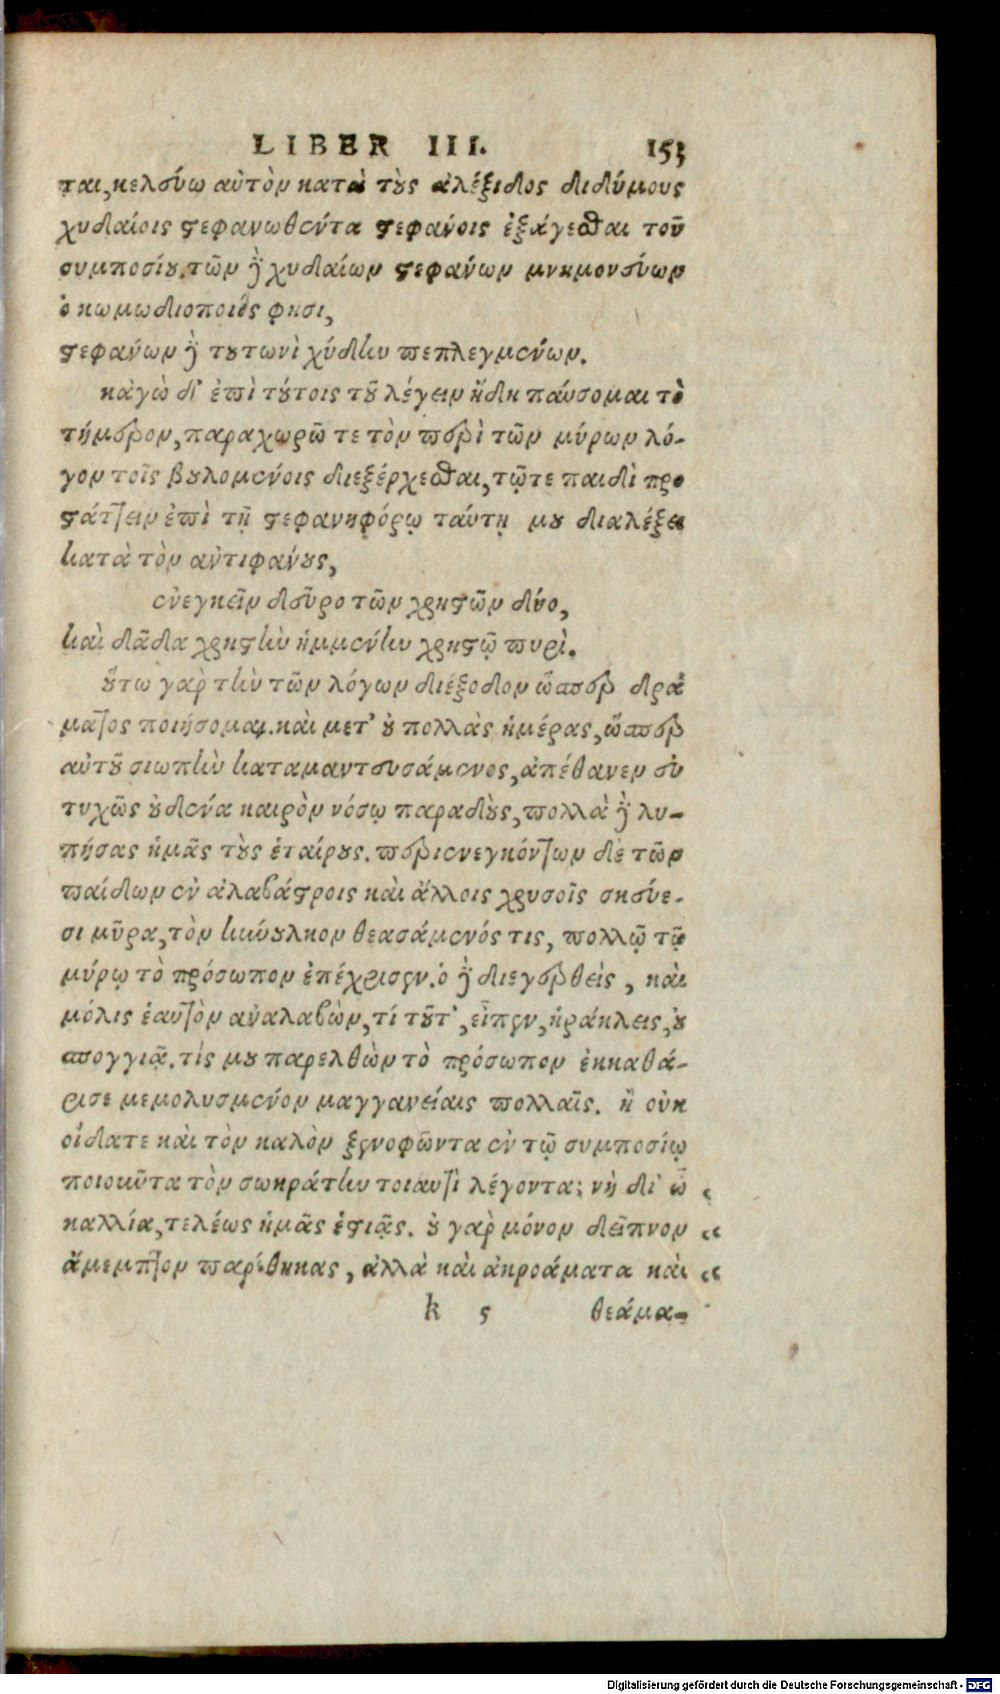 LIBER III. 153
ται, κελεύω αὐτὸν κατὰ τοὺς ἀλέξιδος διδύμους
χυδαίοις στεφανωθέντα στεφάνοις ἐξάγεσθαι τοῦ
συμποσίου. τῶν δὲ χυδαίων στεφάνων μνημονεύων
ὁ κωμωδιοποιός φησι,
στεφάνων δὲ τουτωνὶ χύδην πεπλεγμένων.
κἀγὼ δ' ἐπὶ τούτοις τοῦ λέγειν ἤδη παύσομαι τὸ
τήμερον, παραχωρῶ τε τὸν περὶ τῶν μύρων λό-
γον τοῖς βουλομένοις διεξέρχεσθαι, τῷτε παιδὶ προ
στάττειν ἐπὶ τῇ στεφανηφόρῳ ταύτῃ μου διαλέξει
κατὰ τὸν ἀντιφάνους,
ἐνεγκεῖν δεῦρο τῶν χρηστῶν δύο,
καὶ δᾶδα χρηστὴν ἡμμένην χρηστῷ πυρὶ.
οὕτω γὰρ τὴν τῶν λόγων διέξοδον ὥσπερ δρά
ματος ποιήσομαι. καὶ μετ' οὐ πολλὰς ἡμέρας, ὥσπερ
αὐτοῦ σιωπὴν καταμαντευσάμενος, ἀπέθανεν εὐ
τυχῶς οὐδένα καιρὸν νόσῳ παραδοὺς, πολλὰ δὲ λυ-
πήσας ἡμᾶς τοὺς ἑταίρους. περιενεγκόντων δὲ τῶν
παίδων ἐν ἀλαβάστροις καὶ ἄλλοις χρυσοῖς σκεύε-
σι μῦρα, τὸν κύνουλκον θεασάμενός τις, πολλῷ τῷ
μύρῳ τὸ πρόσωπον ἐπέχρισεν. ὁ δὲ διεγερθεὶς, καὶ
μόλις ἑαυτὸν ἀναλαβὼν, τί τοῦτ', εἶπεν, ἡράκλεις, οὐ
σπογγιᾷ. τὶς μου παρελθὼν τὸ πρόσωπον ἐκκαθά-
ρισε μεμολυσμένον μαγγανείαις πολλαῖς. ἢ οὐκ
οἴδατε καὶ τὸν καλὸν ξενοφῶντα ἐν τῷ συμποσίῳ
ποιοῦντα τὸν σωκράτην τοιαυτὶ λέγοντα; νὴ δί' ὦ
καλλία, τελέως ἡμᾶς ἑστιᾷς. οὐ γὰρ μόνον δεῖπνον
ἄμεμπτον παρέθηκας, ἀλλὰ καὶ ἀκροάματα καὶ
k 5 θεάμα-
Digitalisierung gefördert durch die Deutsche Forschungsgemeinschaft - DFG